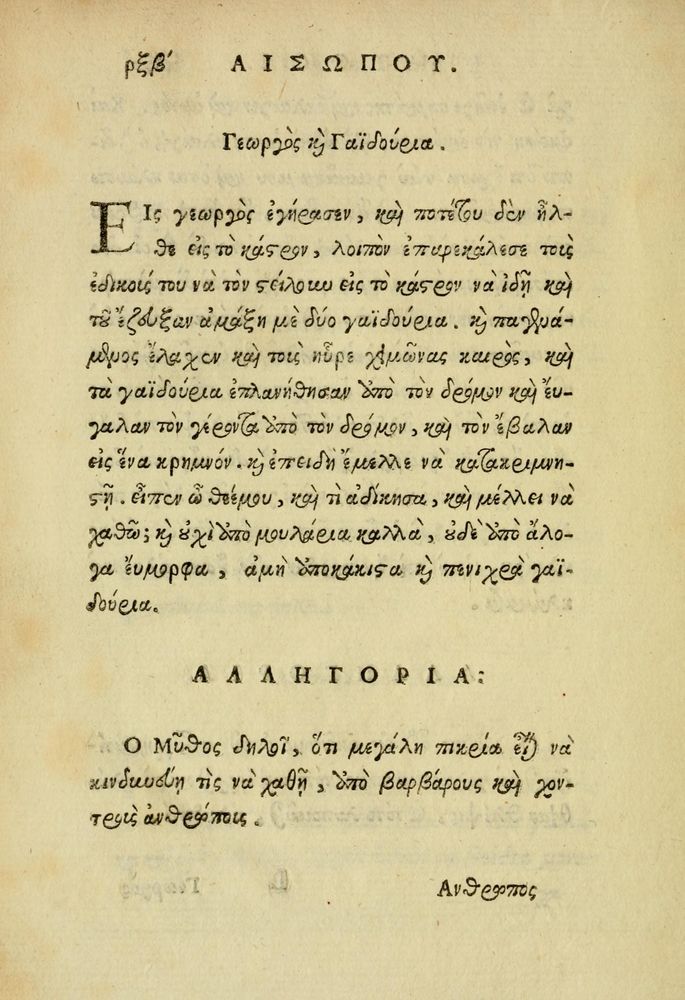 ρξβʹ ΑΙΣΩΠΟΥ.
Γεωργὸς κὶ Γαϊδούρια.
ΕΙς γεωργὸς ἐγήρασεν, καὶ ποτέτου δὲν ἦλ-
θε εἰς τὸ κάστρον, λοιπὸν ἐπαρεκάλεσε τοὶς
ἐδικοίς του νὰ τὸν στείλουν εἰς τὸ κάστρον νὰ ἰδῇ καὶ
τοῦ ἔζευξαν ἁμάξη μὲ δύο γαϊδούρια. κὶ παγενά-
μενος ἔλαχεν καὶ τοὶς ηὗρε χειμῶνας καιρὸς, καὶ
τὰ γαϊδούρια ἐπλανήθησαν ἀπὸ τὸν δρόμον καὶ ἔυ-
γαλαν τὸν γέροντα ἀπὸ τὸν δρόμον, καὶ τὸν ἔβαλαν
εἰς ἕνα κρημνόν. κὶ ἐπειδὴ ἔμελλε νὰ κατακριμνη-
στῇ. εἶπεν ὦ θεέμου, καὶ τὶ ἀδίκησα, καὶ μέλλει νὰ
χαθῶ; κὶ οὐχὶ ἀπὸ μουλάρια καλλὰ, οὐδὲ ἀπὸ ἄλο-
γα ἔυμορφα, ἀμὴ ἀποκάκιστα κὶ πενιχρὰ γαϊ-
δούρια.
ΑΛΛΗΓΟΡΙΑ:
Ο Μῦθος δηλοῖ, ὅτι μεγάλη πικρία εἶναι νὰ
κινδυνεύῃ τὶς νὰ χαθῇ, ἀπὸ βαρβάρους καὶ χον-
τροὶς ἀνθρώποις.
Ανθρωπος